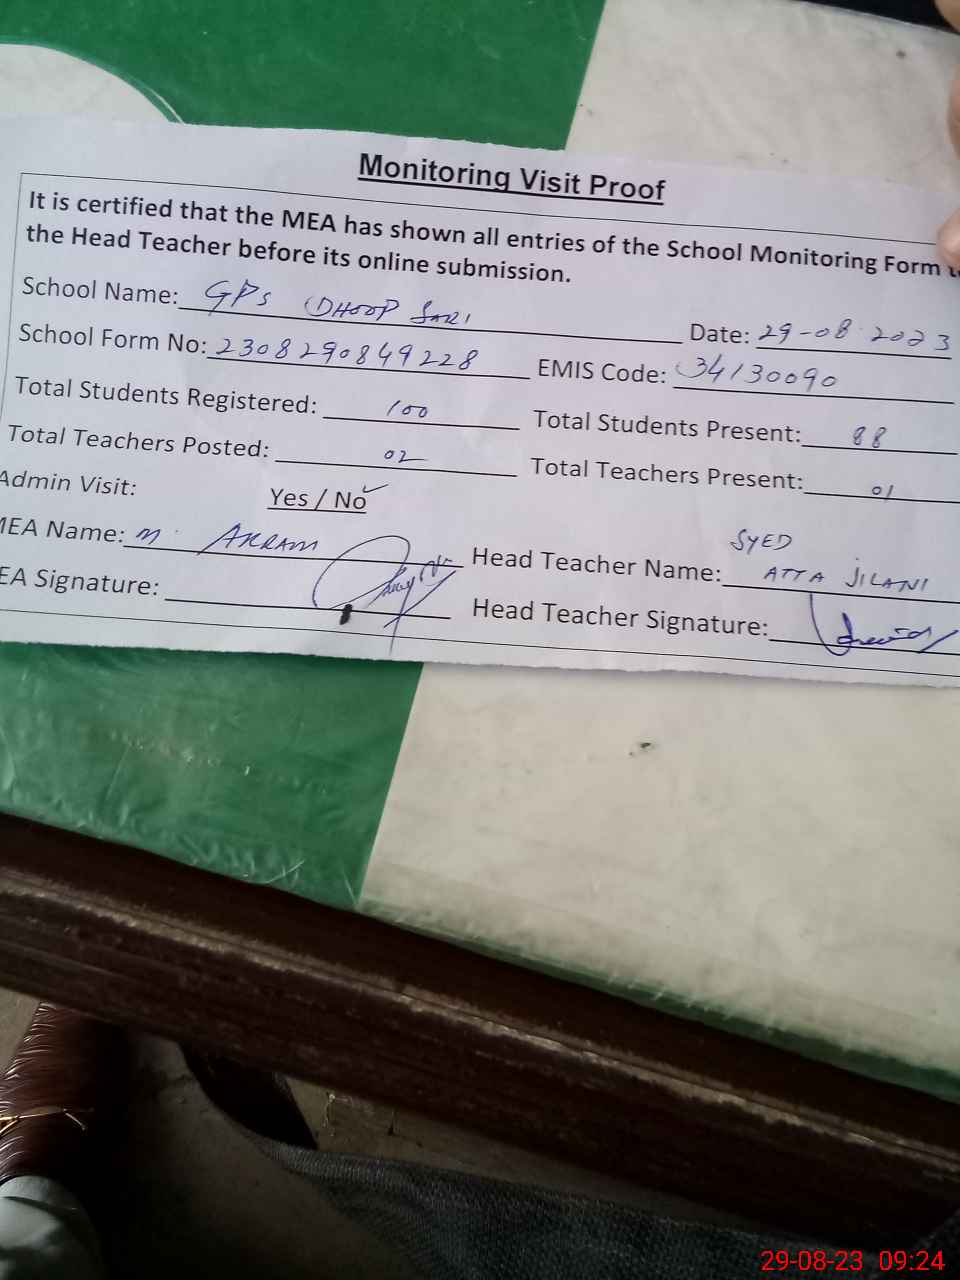 Monitoring Visit Proof
It is certified that the MEA has shown all entries of the School Monitoring Form
the Head Teacher before its online submission.
School Name: GPS DHOOP SARI Date: 29-08-2023
School Form No: 2308290849228 EMIS Code: 34130090
Total Students Registered: 100 Total Students Present: 88
Total Teachers Posted: 02 Total Teachers Present: 01
Admin Visit: Yes / No
MEA Name: M. AKRAM Head Teacher Name: SYED ATTA JILANI
EA Signature: Head Teacher Signature:
29-08-23 09:24